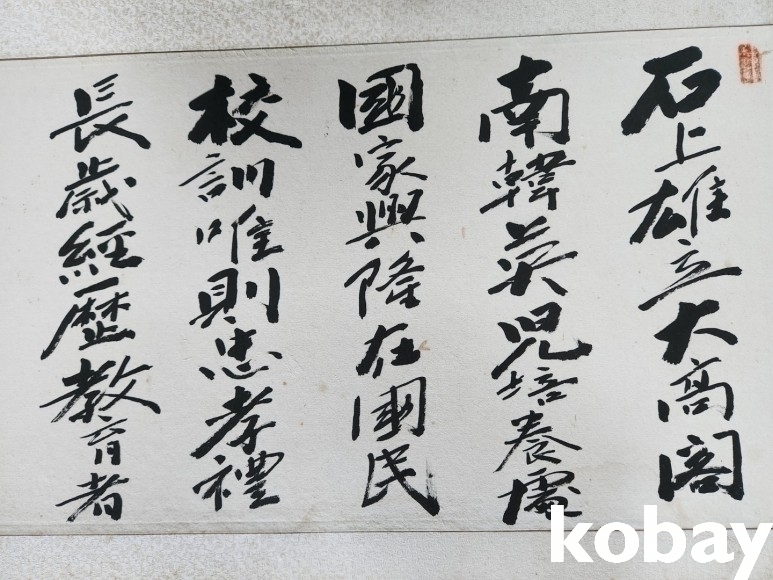 石上雄立大高阁
南韓英児培養壚
國家興隆在國民
校訓唯則忠孝禮
長歲經歷教育者
kobay